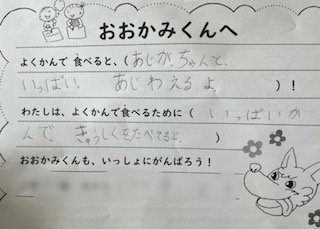 おおかみくんへ
よくかんで 食べると、( あじが、ちゃんと、
いっぱい、 あじわえるよ、 )!
わたしは、よくかんで食べるために ( いっぱいか
んで、きゅうしくをたべてるよ、 )
おおかみくんも、いっしょにがんばろう!